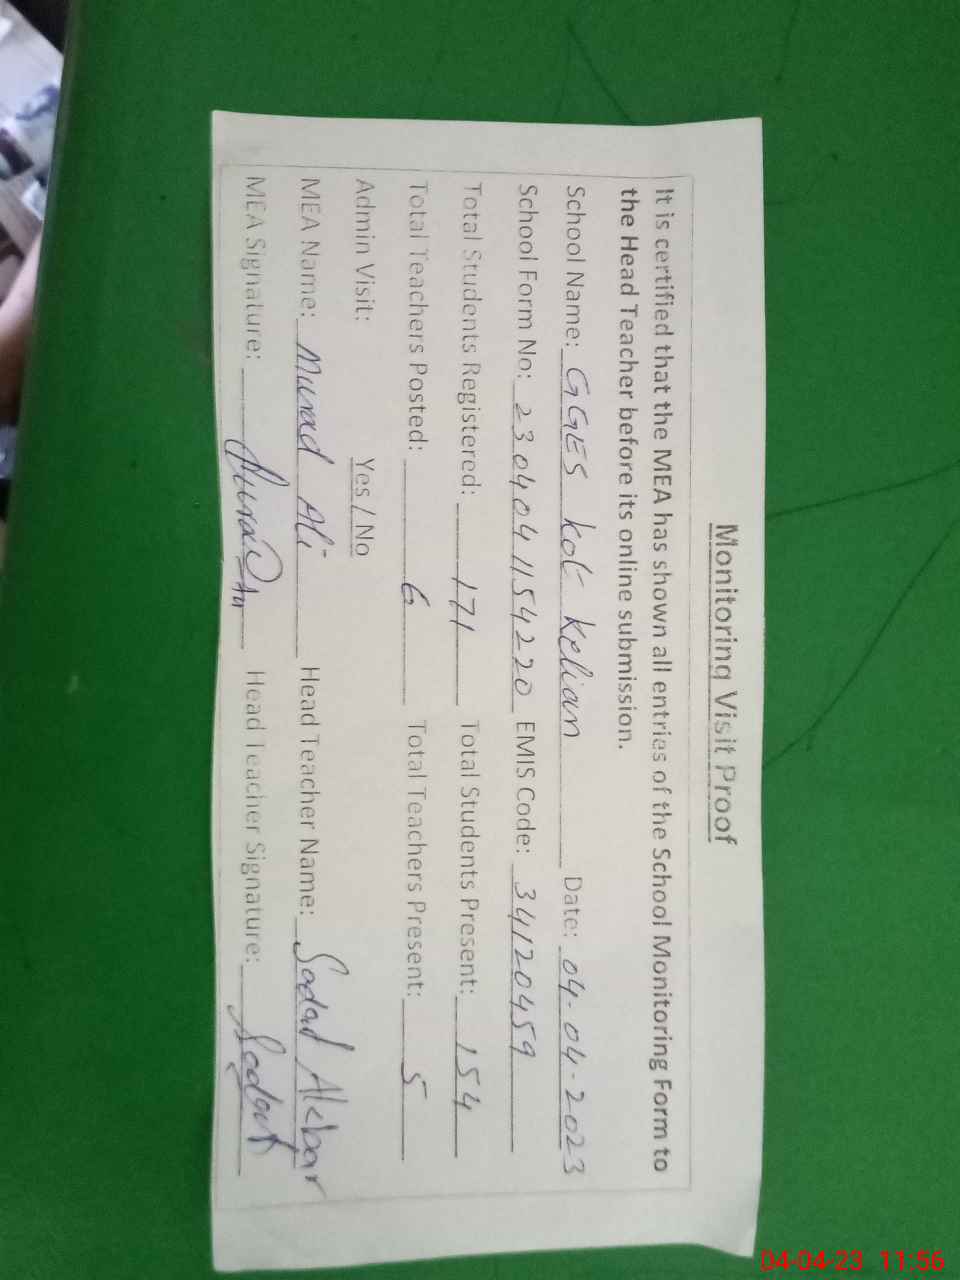 Monitoring Visit Proof
It is certified that the MEA has shown all entries of the School Monitoring Form to
the Head Teacher before its online submission.
School Name: GGES kot kelian Date: 04-04-2023
School Form No: 2304041154220 EMIS Code: 34120459
Total Students Registered: 171 Total Students Present: 154
Total Teachers Posted: 6 Total Teachers Present: 5
Admin Visit: Yes / No
MEA Name: Murad Ali Head Teacher Name: Sadaf Akbar
MEA Signature: Head Teacher Signature: Sadaf
04-04-23 11:56